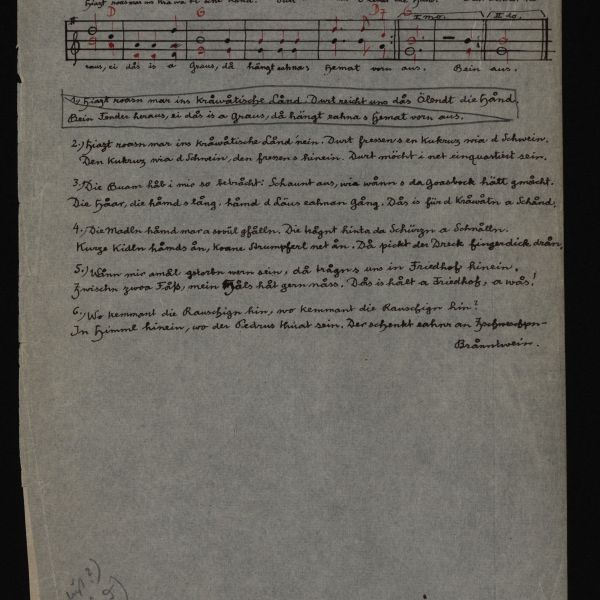 D G D D7 G I mo. II do.
raus, ei dås is a Graus, då hängt eahna s Hemat vorn aus. Bein aus.
1.) Hiazt roasn mar ins Kråwåtische Lånd. Durt reicht uns dås Ölendt die Hånd.
Bein Fenster heraus, ei dås is a Graus, då hängt eahna s Hemat vorn aus.
2.) Hiazt roasn mar ins Kråwåtische Lånd 'nein. Durt fressen s en Kukruz wia d Schwein.
Den Kukruz wia d Schwein, den fressn s hinein. Durt möcht i net einquartiert sein.
3.) Die Buam håb i mio so betrácht: Schaunt aus, wia wånn s da Goasbock hätt gmåcht.
Die Håar, die håmd s lång, håmd d Läus eahnan Gång. Dås is für d Kråwåtn a Schånd.
4.) Die Madln håmd mar a sovül gfålln. Die trågnt hinta da Schürzn a Schnålln.
Kurze Kidln håmds ån, koane Strumpferl net ån. Då pickt der Dreck fingerdick drån.
5.) Wånn mir amål gstorbn wern sein, då trågn s uns in Friedhof hinein.
Zwischn zwoa Fåß, mein Håls håt gern nåss. Dås is hålt a Friedhof, a wås!
6.) Wo kemmant die Rauschign hin, wo kemmant die Rauschign hin?
In Himml hinein, wo der Pedrus thuat sein. Der schenkt eahna an
Brånntwein.